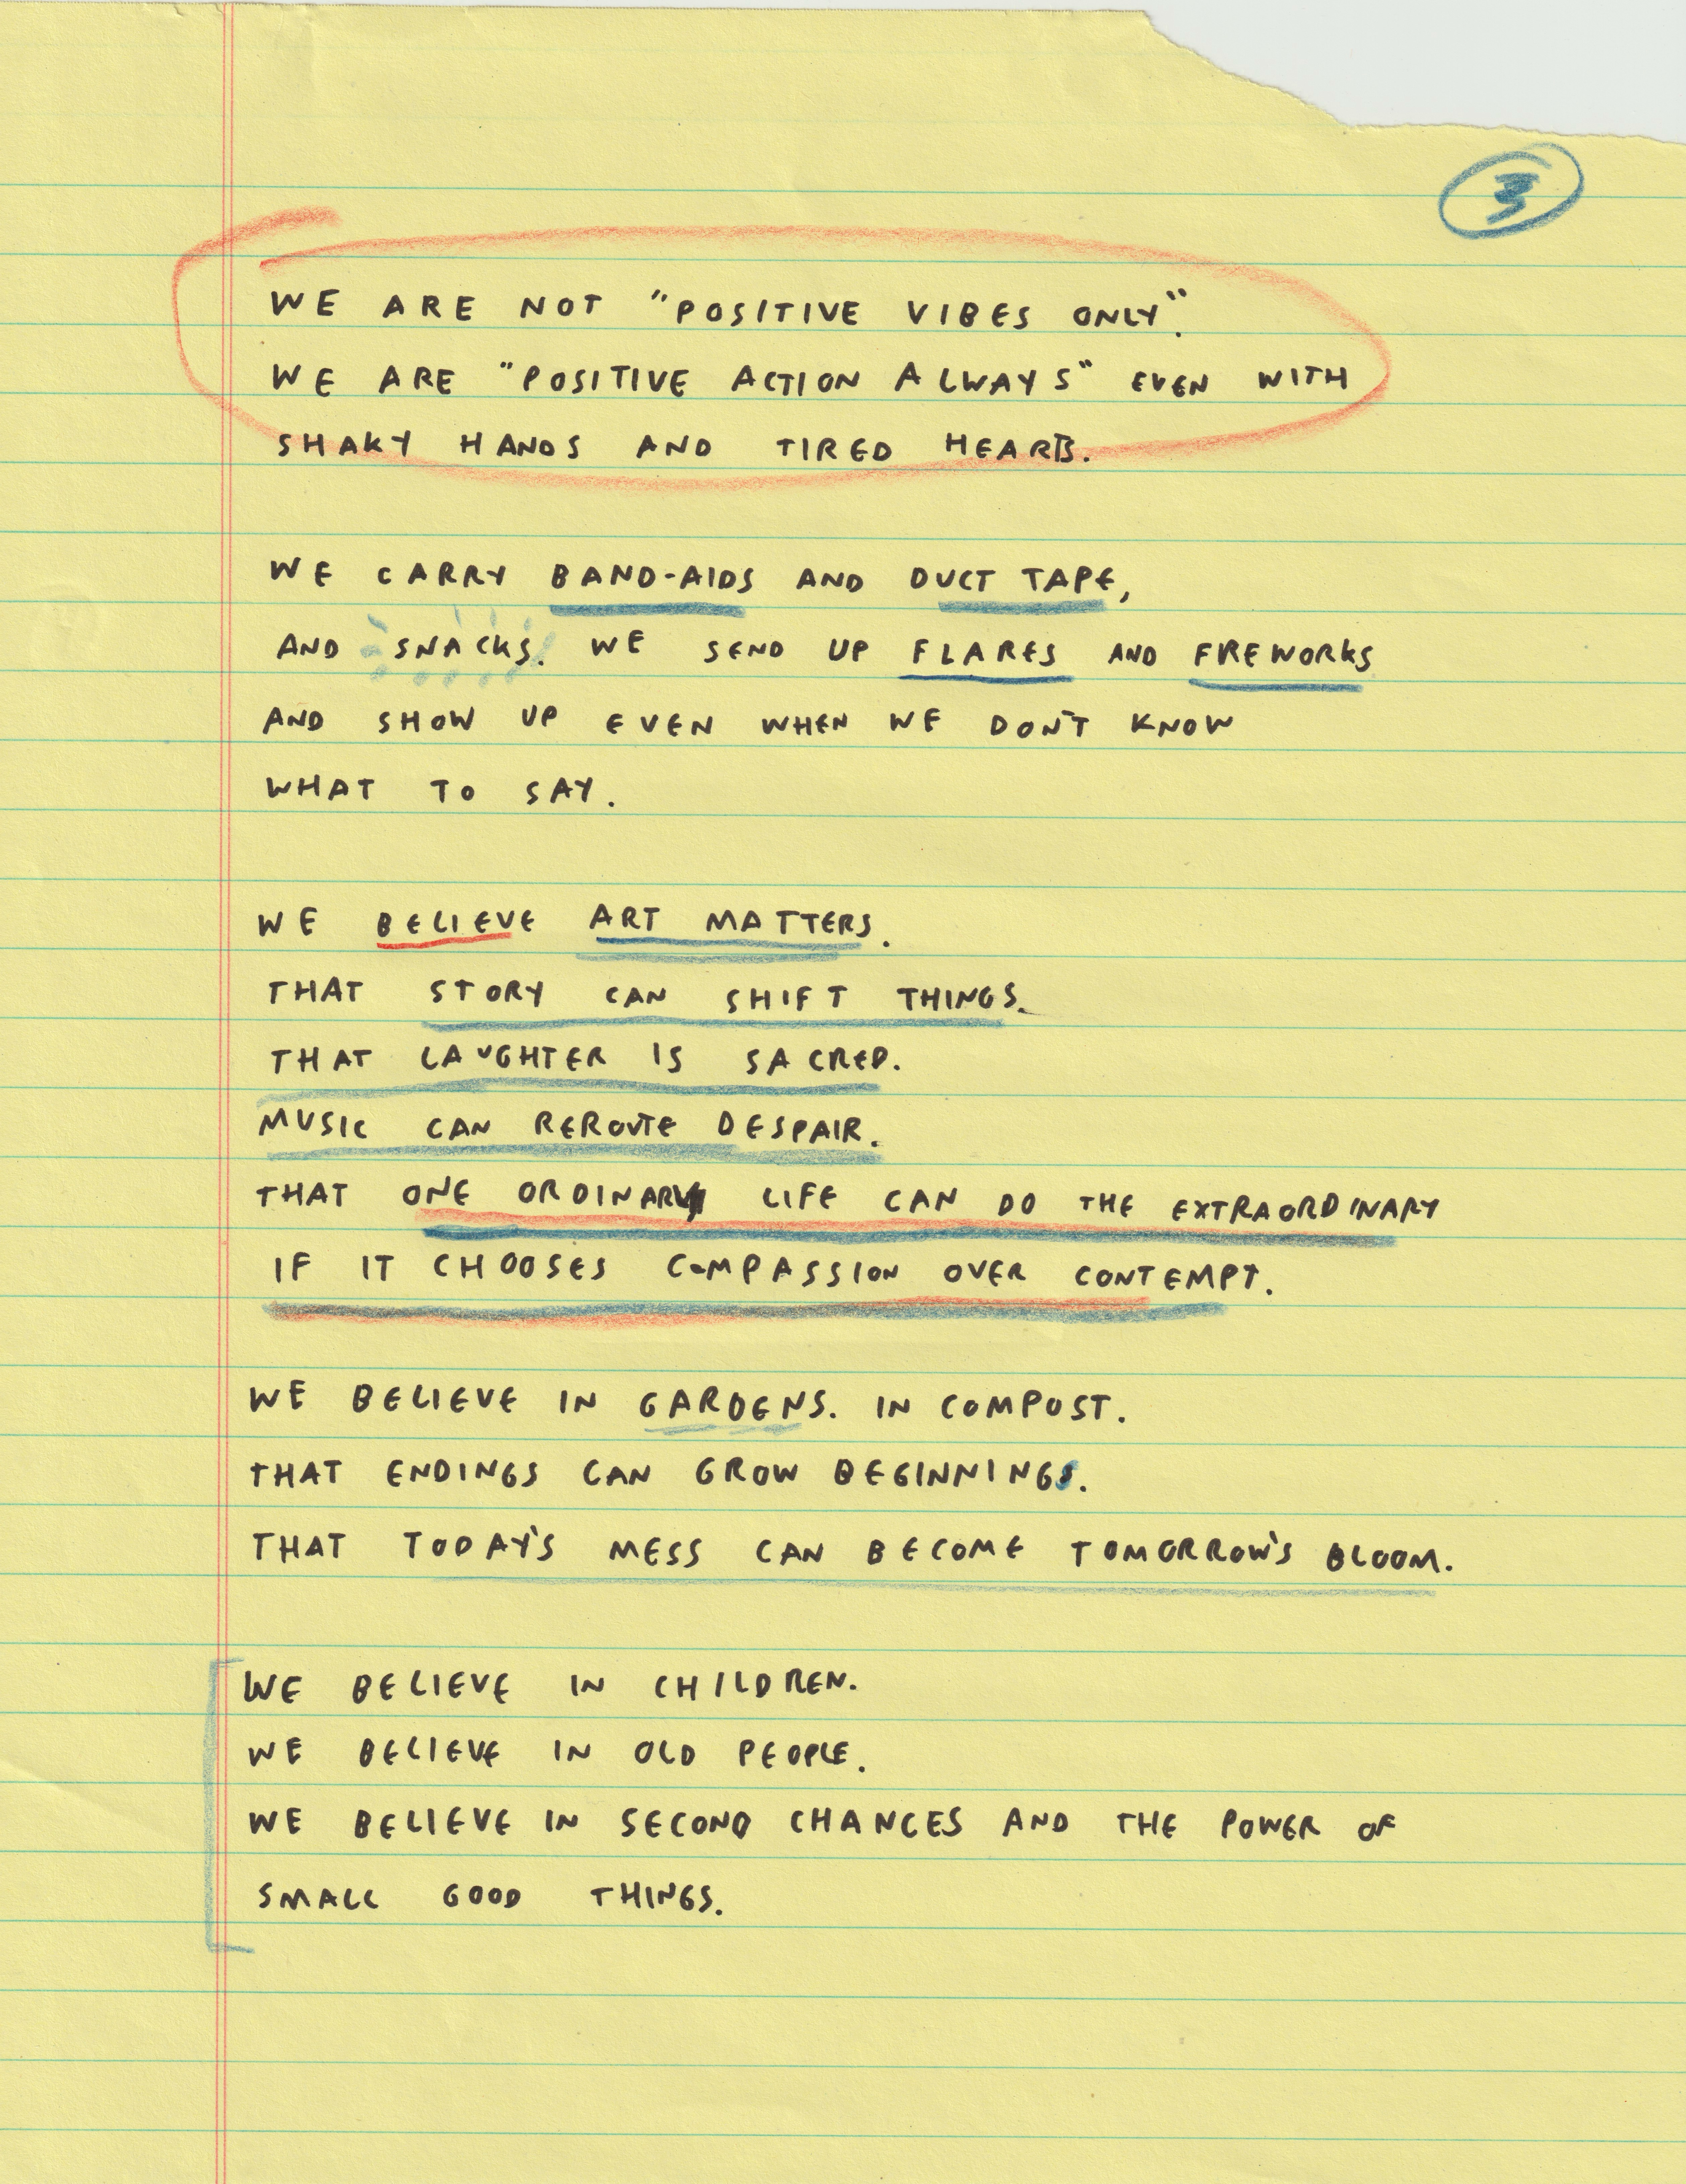 3
WE ARE NOT "POSITIVE VIBES ONLY".
WE ARE "POSITIVE ACTION ALWAYS" EVEN WITH
SHAKY HANDS AND TIRED HEARTS.
WE CARRY BAND-AIDS AND DUCT TAPE,
AND SNACKS. WE SEND UP FLARES AND FREWORKS
AND SHOW UP EVEN WHEN WE DON'T KNOW
WHAT TO SAY.
WE BELIEVE ART MATTERS.
THAT STORY CAN SHIFT THINGS.
THAT LAUGHTER IS SACRED.
MUSIC CAN REROUTE DESPAIR.
THAT ONE ORDINARY LIFE CAN DO THE EXTRAORDINARY
IF IT CHOOSES COMPASSION OVER CONTEMPT.
WE BELIEVE IN GARDENS. IN COMPOST.
THAT ENDINGS CAN GROW BEGINNINGS.
THAT TODAY'S MESS CAN BECOME TOMORROW'S BLOOM.
WE BELIEVE IN CHILDREN.
WE BELIEVE IN OLD PEOPLE.
WE BELIEVE IN SECOND CHANCES AND THE POWER OF
SMALL GOOD THINGS.